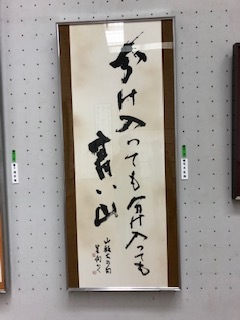 分け入つても分け入つても
青い山
山頭火の句